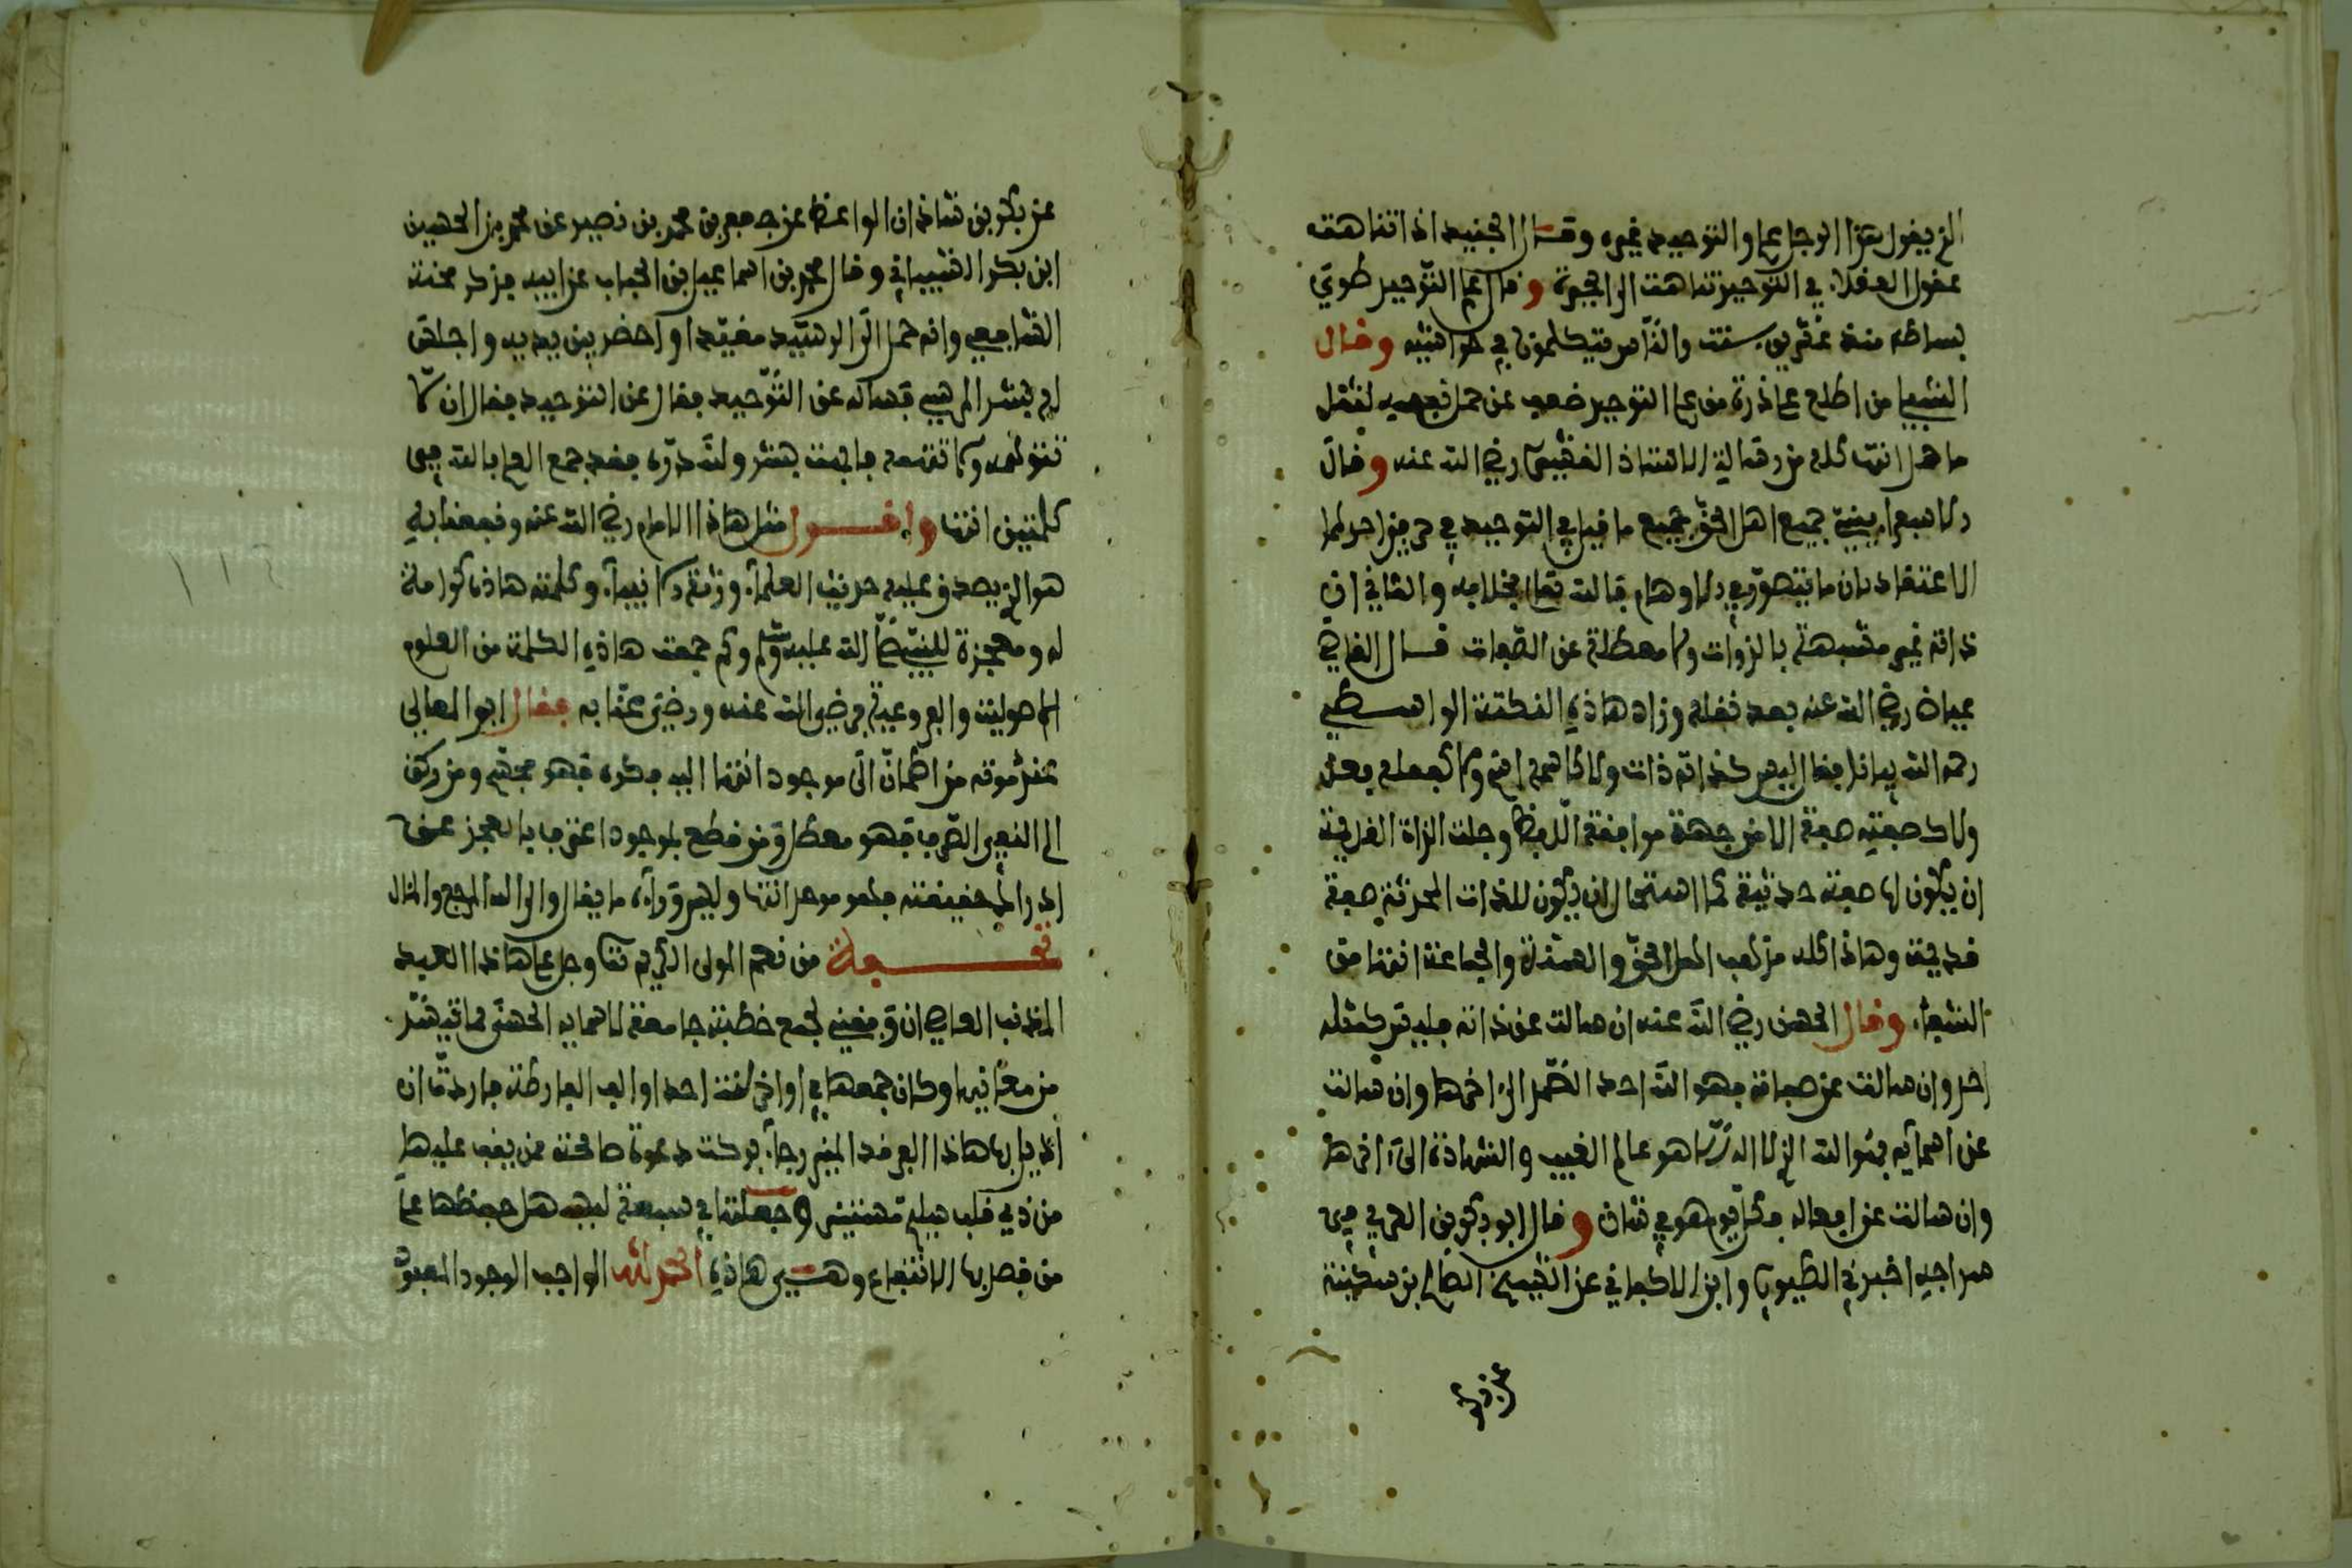 الذي يقول هذا الرجل علم والتوحيد غيره وقال الجنيد اذا تناهت
عقول العقلاء في التوحيد تناهت الى الحيرة وقال علم التوحيد طوي
بساطه منذ عشرين سنة والناس يتكلمون في حواشيه وقال
الشبلي من اطلع على ذرة من علم التوحيد ضعف عن حمل لثقل
ما حمل انتهى كله من رسالة الاستاذ القشيري رضي الله عنه وقال
جميع اهل الحق جميع ما قيل في التوحيد في
الاعتقاد بان ما يتصور في الاوهام فالله تعالى بخلافه والثاني ان
ذاته غير مشبهة بالذوات ولا معطلة عن الصفات قال القاضي
عياض رضي الله عنه بعد نقله وزاد هاذه النكتة الواسطي
رحمه الله بيانا فقال ليس كذاته ذات ولا كاسمه اسم ولا كفعله فعل
ولا كصفته صفة الا من جهة موافقة اللفظ وجلت الذات القديمة
ان يكون لها صفة حديثة كما استحال ان يكون للذات المحدثة صفة
قديمة وهاذا كله مذهب اهل الحق والسنة والجماعة انتهى من
الشفاء وقال الحسن رضي الله عنه ان سالت عن ذاته فليس كمثله
وان سالت عن صفاته فهو الله احد الصمد الى اخرها وان سالت
عن اسمائه فهو الله الذي لا اله الا هو عالم الغيب والشهادة الى اخرها
وان سالت عن افعاله فكل يوم هو في شان وقال ابو بكر بن العربي في
سراجه اخبرني الطيوري وابن الاكفاني عن الشيخ الصالح بن سكينة
عن بكر
عن بكر بن شاذان الواعظ عن جعفر بن محمد بن نصير عن محمد بن الحسين
ابن بكر الشيباني وقال محمد بن اسماعيل بن الحباب عن ابيه فذكر محنة
الشافعي وانه حمل الى الرشيد مقيدا واحضر بين يديه واجلس
لم بشر المريسي فساله عن التوحيد فقال عن التوحيد فقال ان لا
تتوهمه ولا تتهمه فابهت بشر ولله دره فقد جمع العلم بالله في
كلمتين انتهى واقول مثل هاذا الامام رضي الله عنه ونفعنا به
هو الذي يصدق عليه حديث العلماء ورثة الانبياء وكلمته هاذه كرامة
له ومعجزة للنبي صلى الله عليه وسلم وكم جمعت هاذه الكلمة من العلوم
الاصولية والفروعية فرضي الله عنه ورضي عنا به فقال ابو المعالي
من اطمان الى موجود انتهى اليه فكره فهو مشبه ومن ركن
الى النفي الصرف فهو معطل ومن قطع بموجود اعترف بالعجز عن
ادراك حقيقته فهو موحد انتهى وليس وراءه ما يقال والى الله المرجع والمئال
نعمة من نعم المولى الكريم تعالى وجل على هاذا العبد
المذنب العاصي ان وفقني لجمع خطبة جامعة لاسمائه الحسنى مما تيسر
من معانيها وكان جمعها في اواخر سنة احد والف الفارطة فاردت ان
اذيل بها هاذا العرفد المنير رجاء بركة دعوة صالحة ممن يقف عليها
من ذي قلب سليم وجعلتها في سبعة ليسهل حفظها على
من قصد بها الانتفاع وهي هاذه الحمد لله الواجب الوجود المعبود